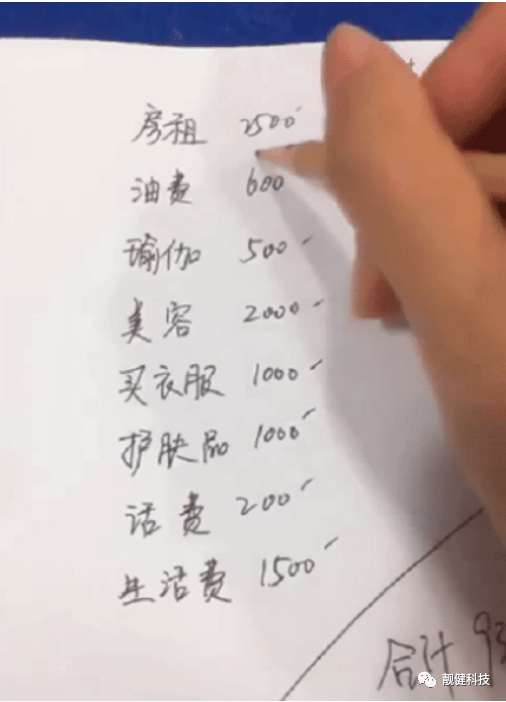 房租 2500
油费 600
瑜伽 500
美容 2000
买衣服 1000
护肤品 1000
话费 200
生活费 1500
合计 93
靓健科技